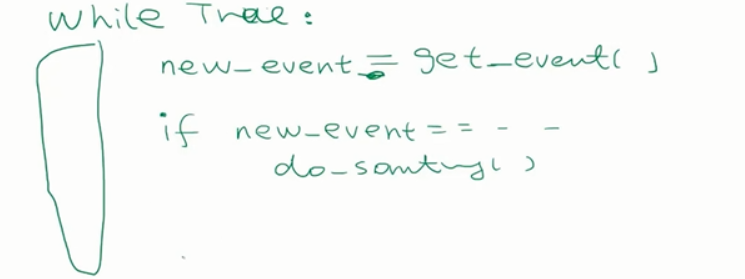 while True:
new_event = get_event()
if new_event == - -
do_somtng()